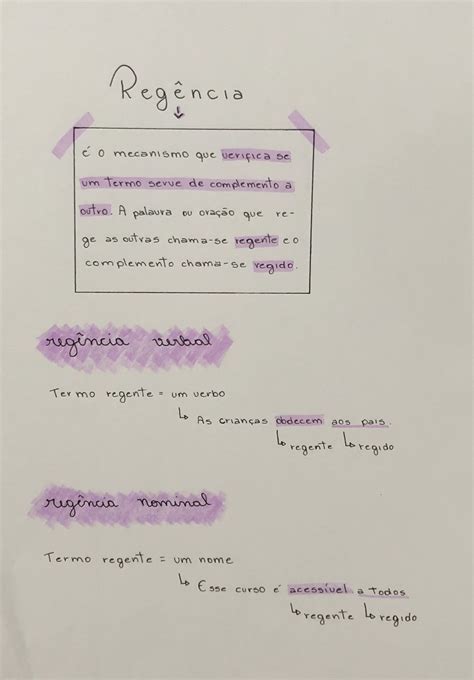 Regência
é o mecanismo que verifica se
um termo serve de complemento a
outro. A palavra ou oração que re-
ge as outras chama-se regente e o
complemento chama-se regido.
regência verbal
Termo regente = um verbo
As crianças obdecem aos pais.
regente regido
regência nominal
Termo regente = um nome
Esse curso é acessível a todos
regente regido